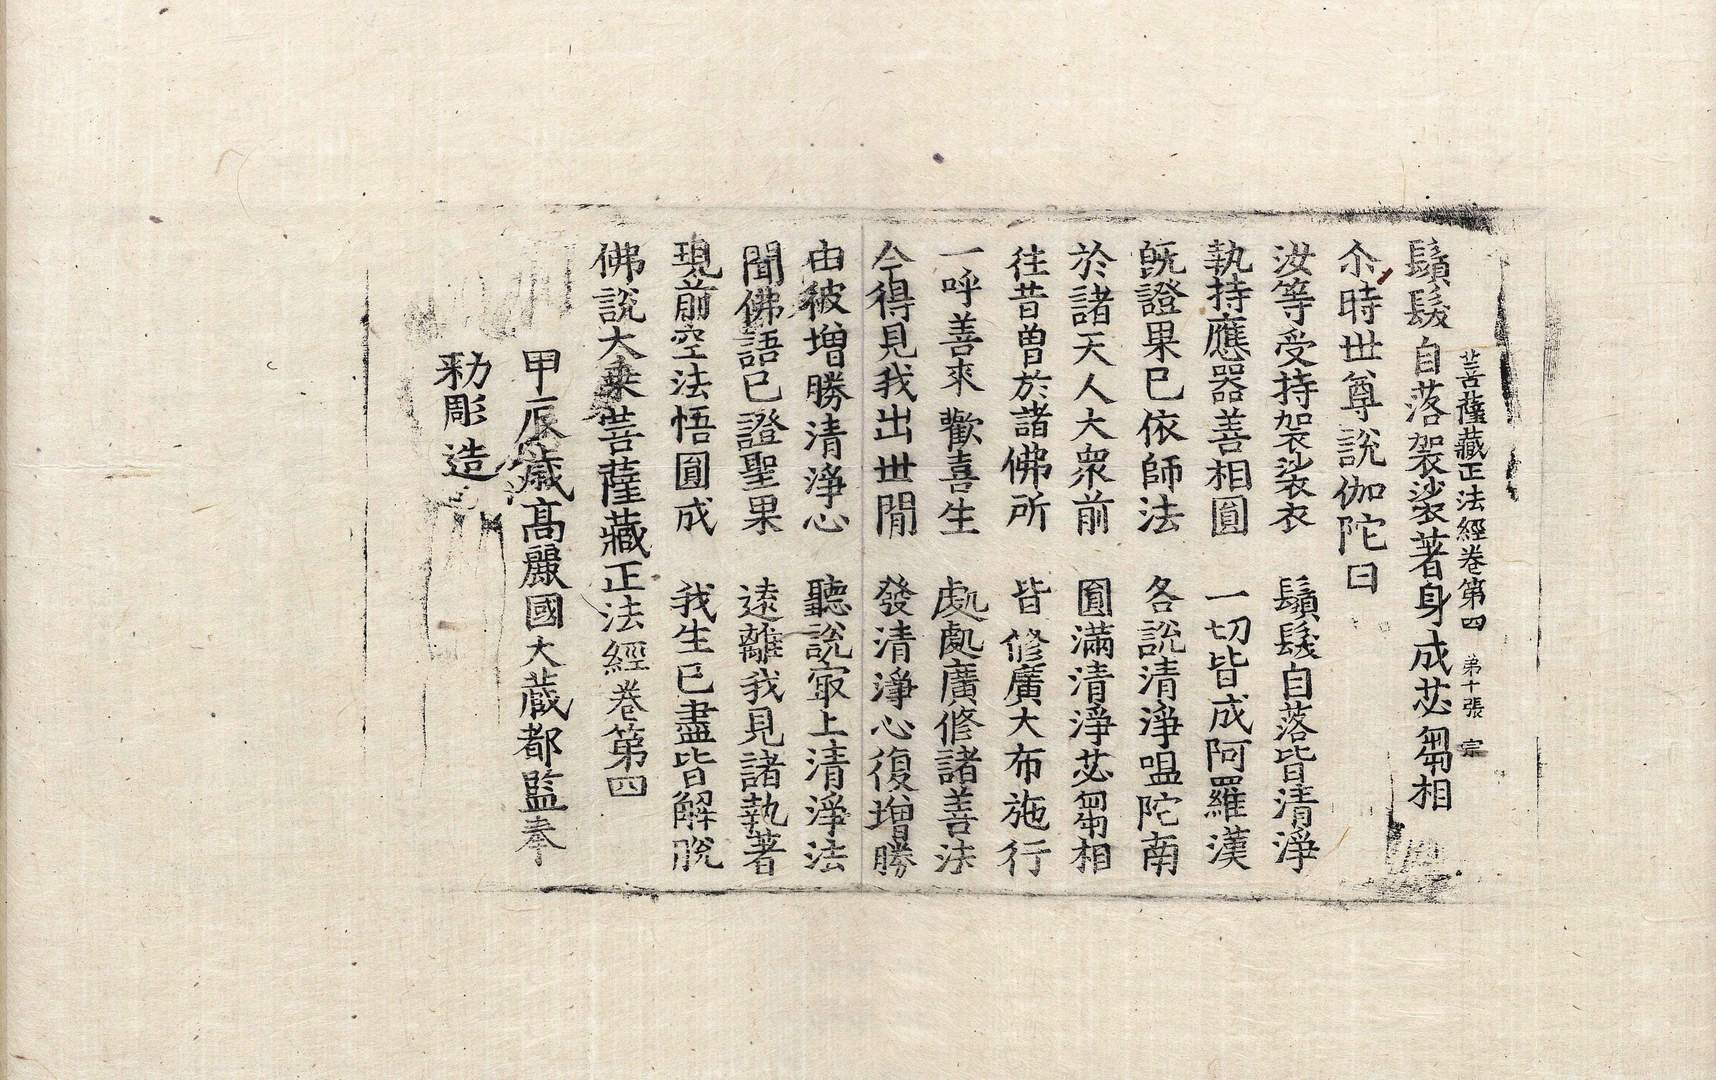 菩薩藏正法經卷第四 第十張 宗
鬚髮自落袈裟著身成苾芻相
尒時世尊說伽陀曰
汝等受持袈裟衣 鬚髮自落皆清淨
執持應器善相圓 一切皆成阿羅漢
旣證果已依師法 各說清淨嗢陀南
於諸天人大衆前 圓滿清淨苾芻相
往昔曾於諸佛所 皆修廣大布施行
一呼善來歡喜生 處處廣修諸善法
今得見我出世閒 發清淨心復增勝
由彼增勝清淨心 聽說㝡上清淨法
聞佛語已證聖果 遠離我見諸執著
現前空法悟圓成 我生已盡皆解脫
佛說大乘菩薩藏正法經卷第四
甲辰歲高麗國大藏都監奉
勑彫造